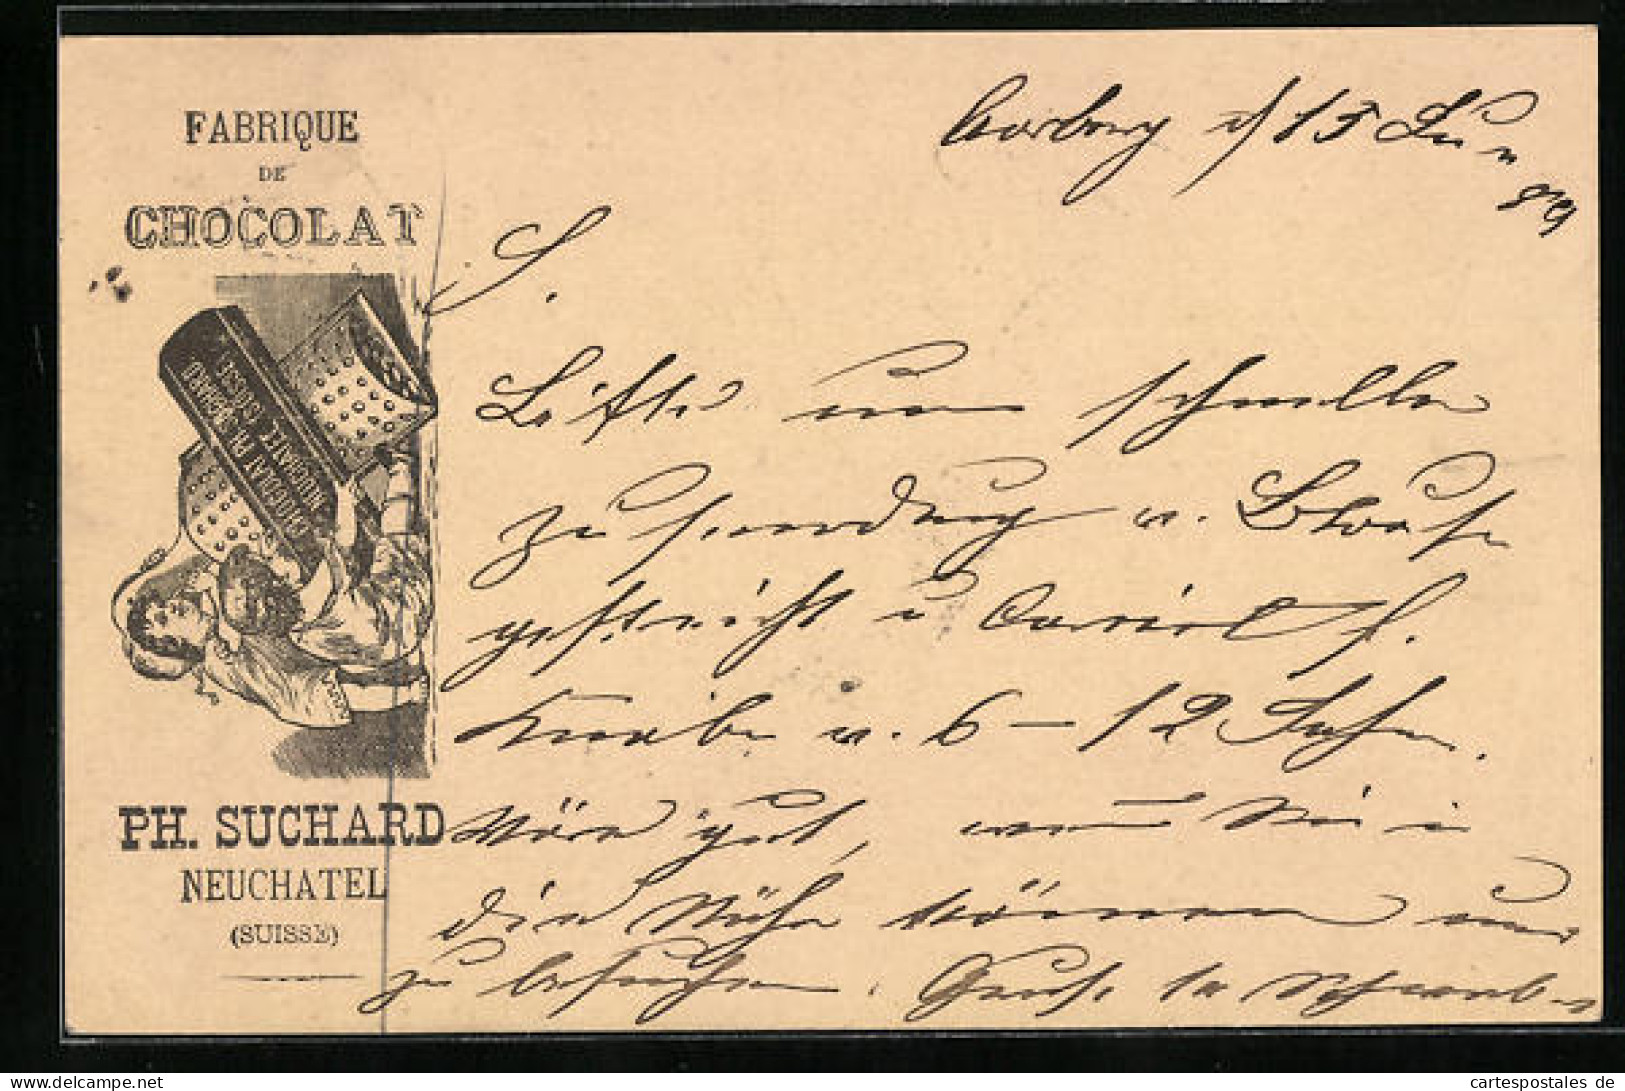 FABRIQUE
DE
CHOCOLAT
CHOCOLAT PH. SUCHARD
NEUCHATEL (SUISSE)
PH. SUCHARD
NEUCHATEL
(SUISSE)
15 Jun
89
S.
Bitte um schnelle
zusendung u. Blouse
gestreift u
Knabe v. 6-12 Jahr.
Wäre gut, wenn Sie i
die Nähe können uns
zu besuchen. Gruss
www.cartespostales de